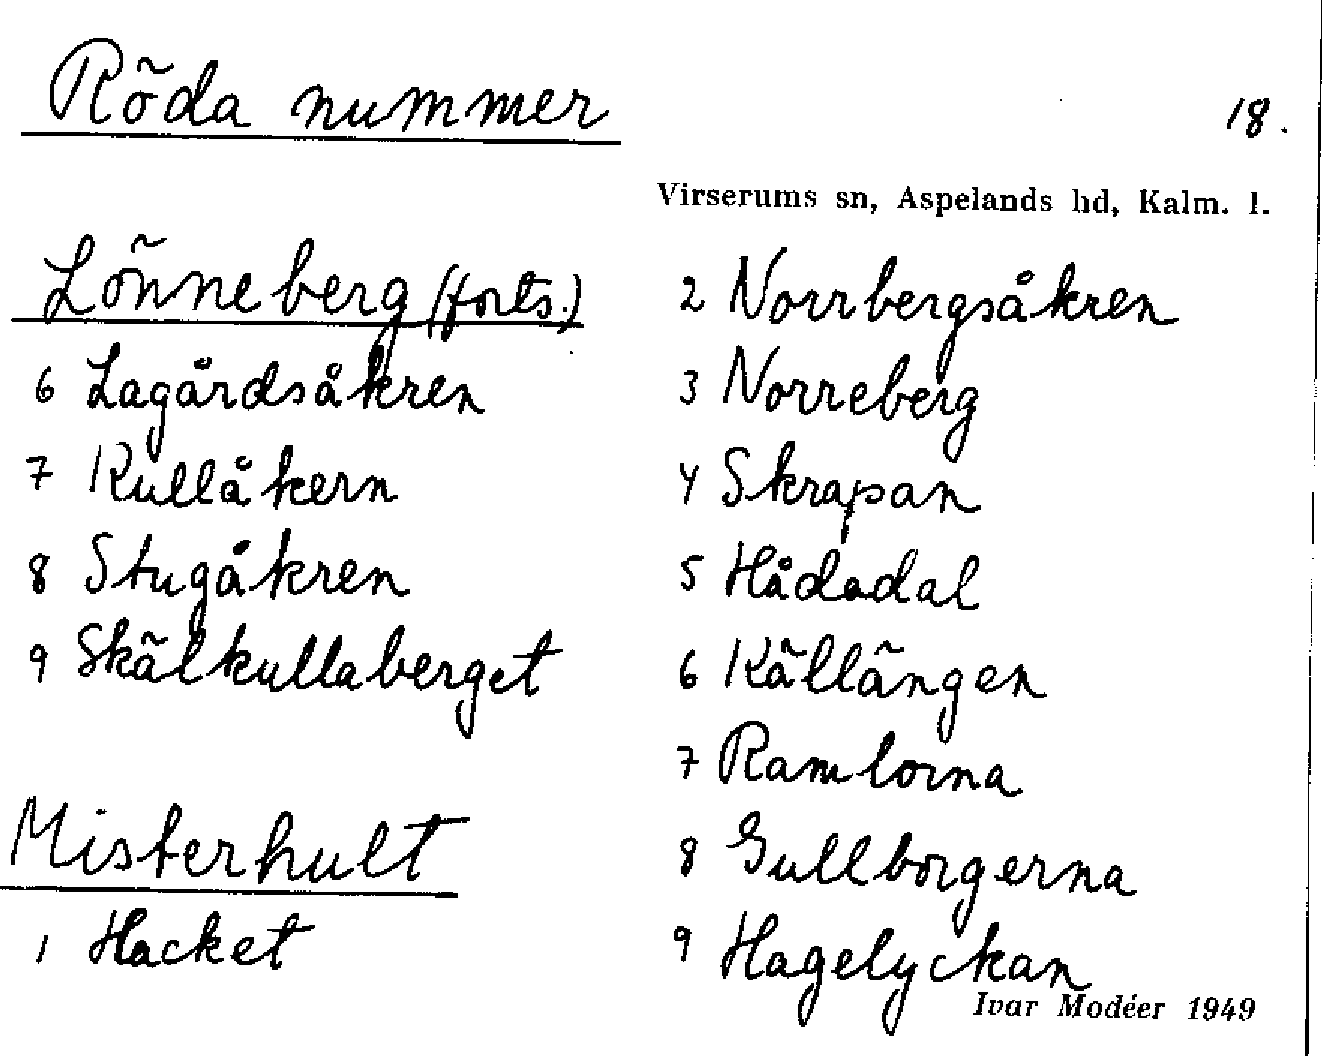 Röda nummer
18.
Virserums sn, Aspelands hd, Kalm. l.
Lönneberg (forts.)
6 Lagårdsåkren
7 Kullåkern
8 Stugåkren
9 Skälkullaberget
Misterhult
1 Hacket
2 Norrbergsåkren
3 Norreberg
4 Skrapan
5 Hådadal
6 Källängen
7 Ramlorna
8 Gullborgerna
9 Hagelyckan
Ivar Modéer 1949